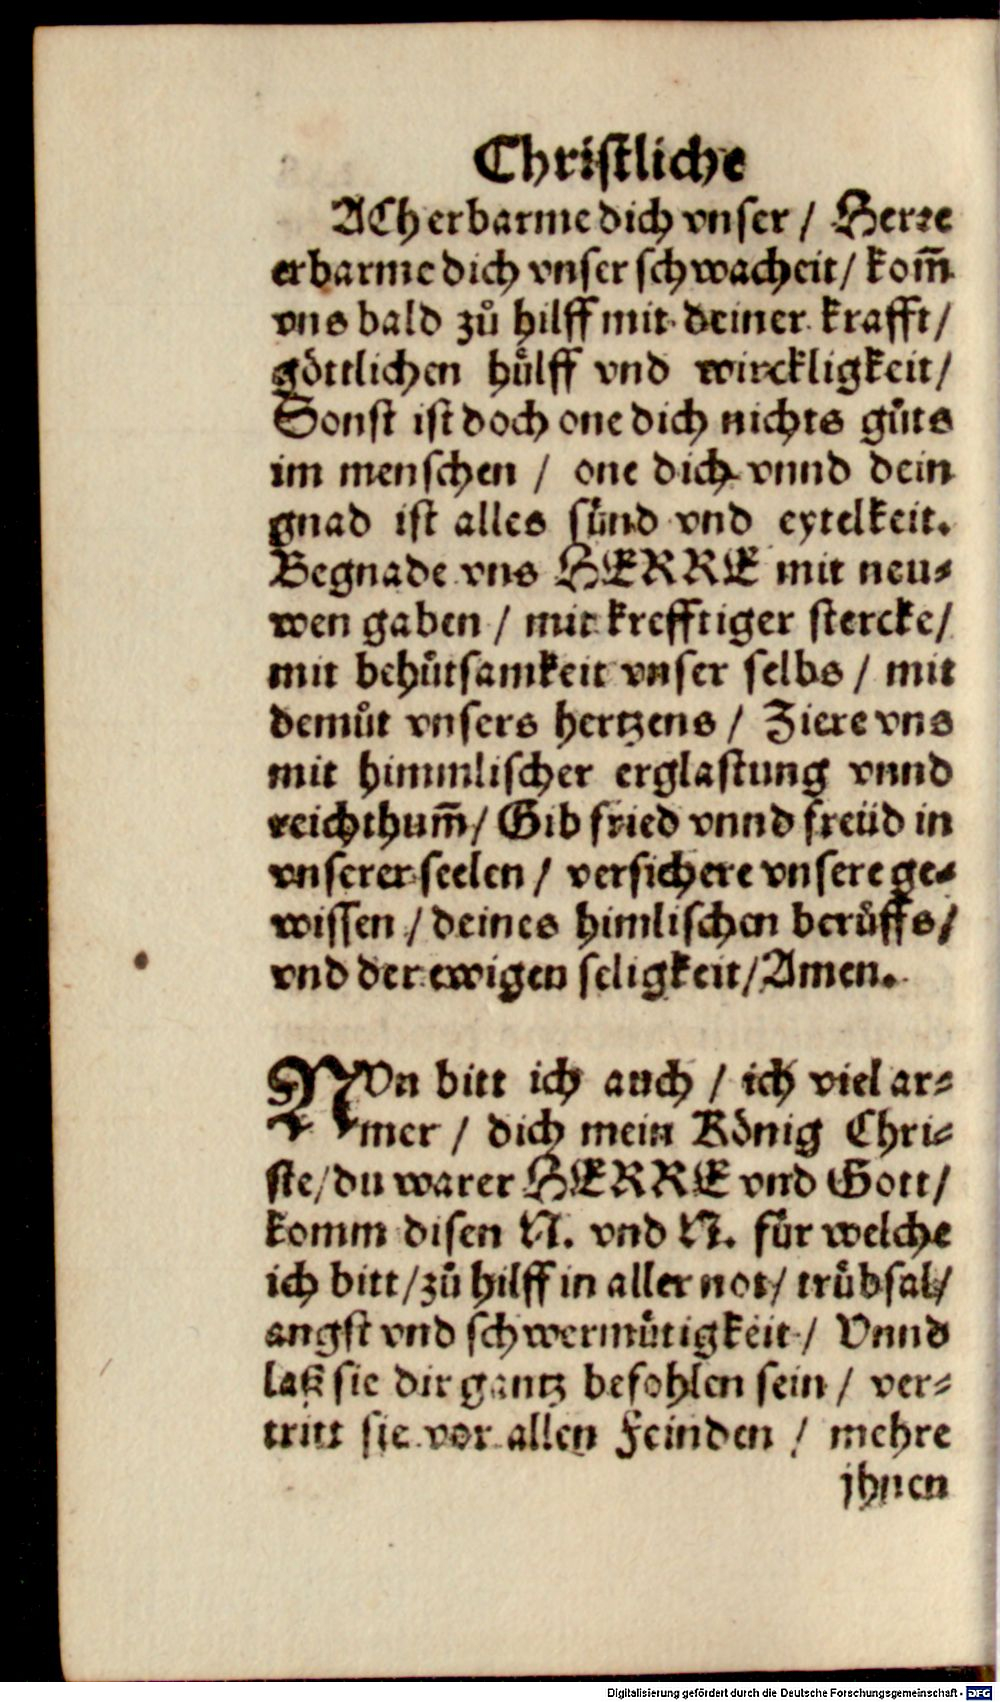 Christliche
ACh erbarme dich vnser / Herꝛe
erbarme dich vnser schwacheit / kom̃
vns bald zů hilff mit deiner krafft /
göttlichen hülff vnd wirckligkeit /
Sonst ist doch one dich nichts gůts
im menschen / one dich vnnd dein
gnad ist alles sünd vnd eytelkeit.
Begnade vns HERRE mit neu⸗
wen gaben / mit krefftiger stercke /
mit behůtsamkeit vnser selbs / mit
demůt vnsers hertzens / Ziere vns
mit himmlischer erglastung vnnd
reichthum̃ / Gib fried vnnd freüd in
vnserer seelen / versichere vnsere ge⸗
wissen / deines himlischen berůffs /
vnd der ewigen seligkeit / Amen.
NVn bitt ich auch / ich viel ar⸗
mer / dich mein König Chri⸗
ste / du warer HERRE vnd Gott /
komm disen N. vnd N. für welche
ich bitt / zů hilff in aller not / trübsal /
angst vnd schwermůtigkeit / Vnnd
laß sie dir gantz befohlen sein / ver⸗
tritt sie vor allen Feinden / mehre
jhnen
Digitalisierung gefördert durch die Deutsche Forschungsgemeinschaft - DFG